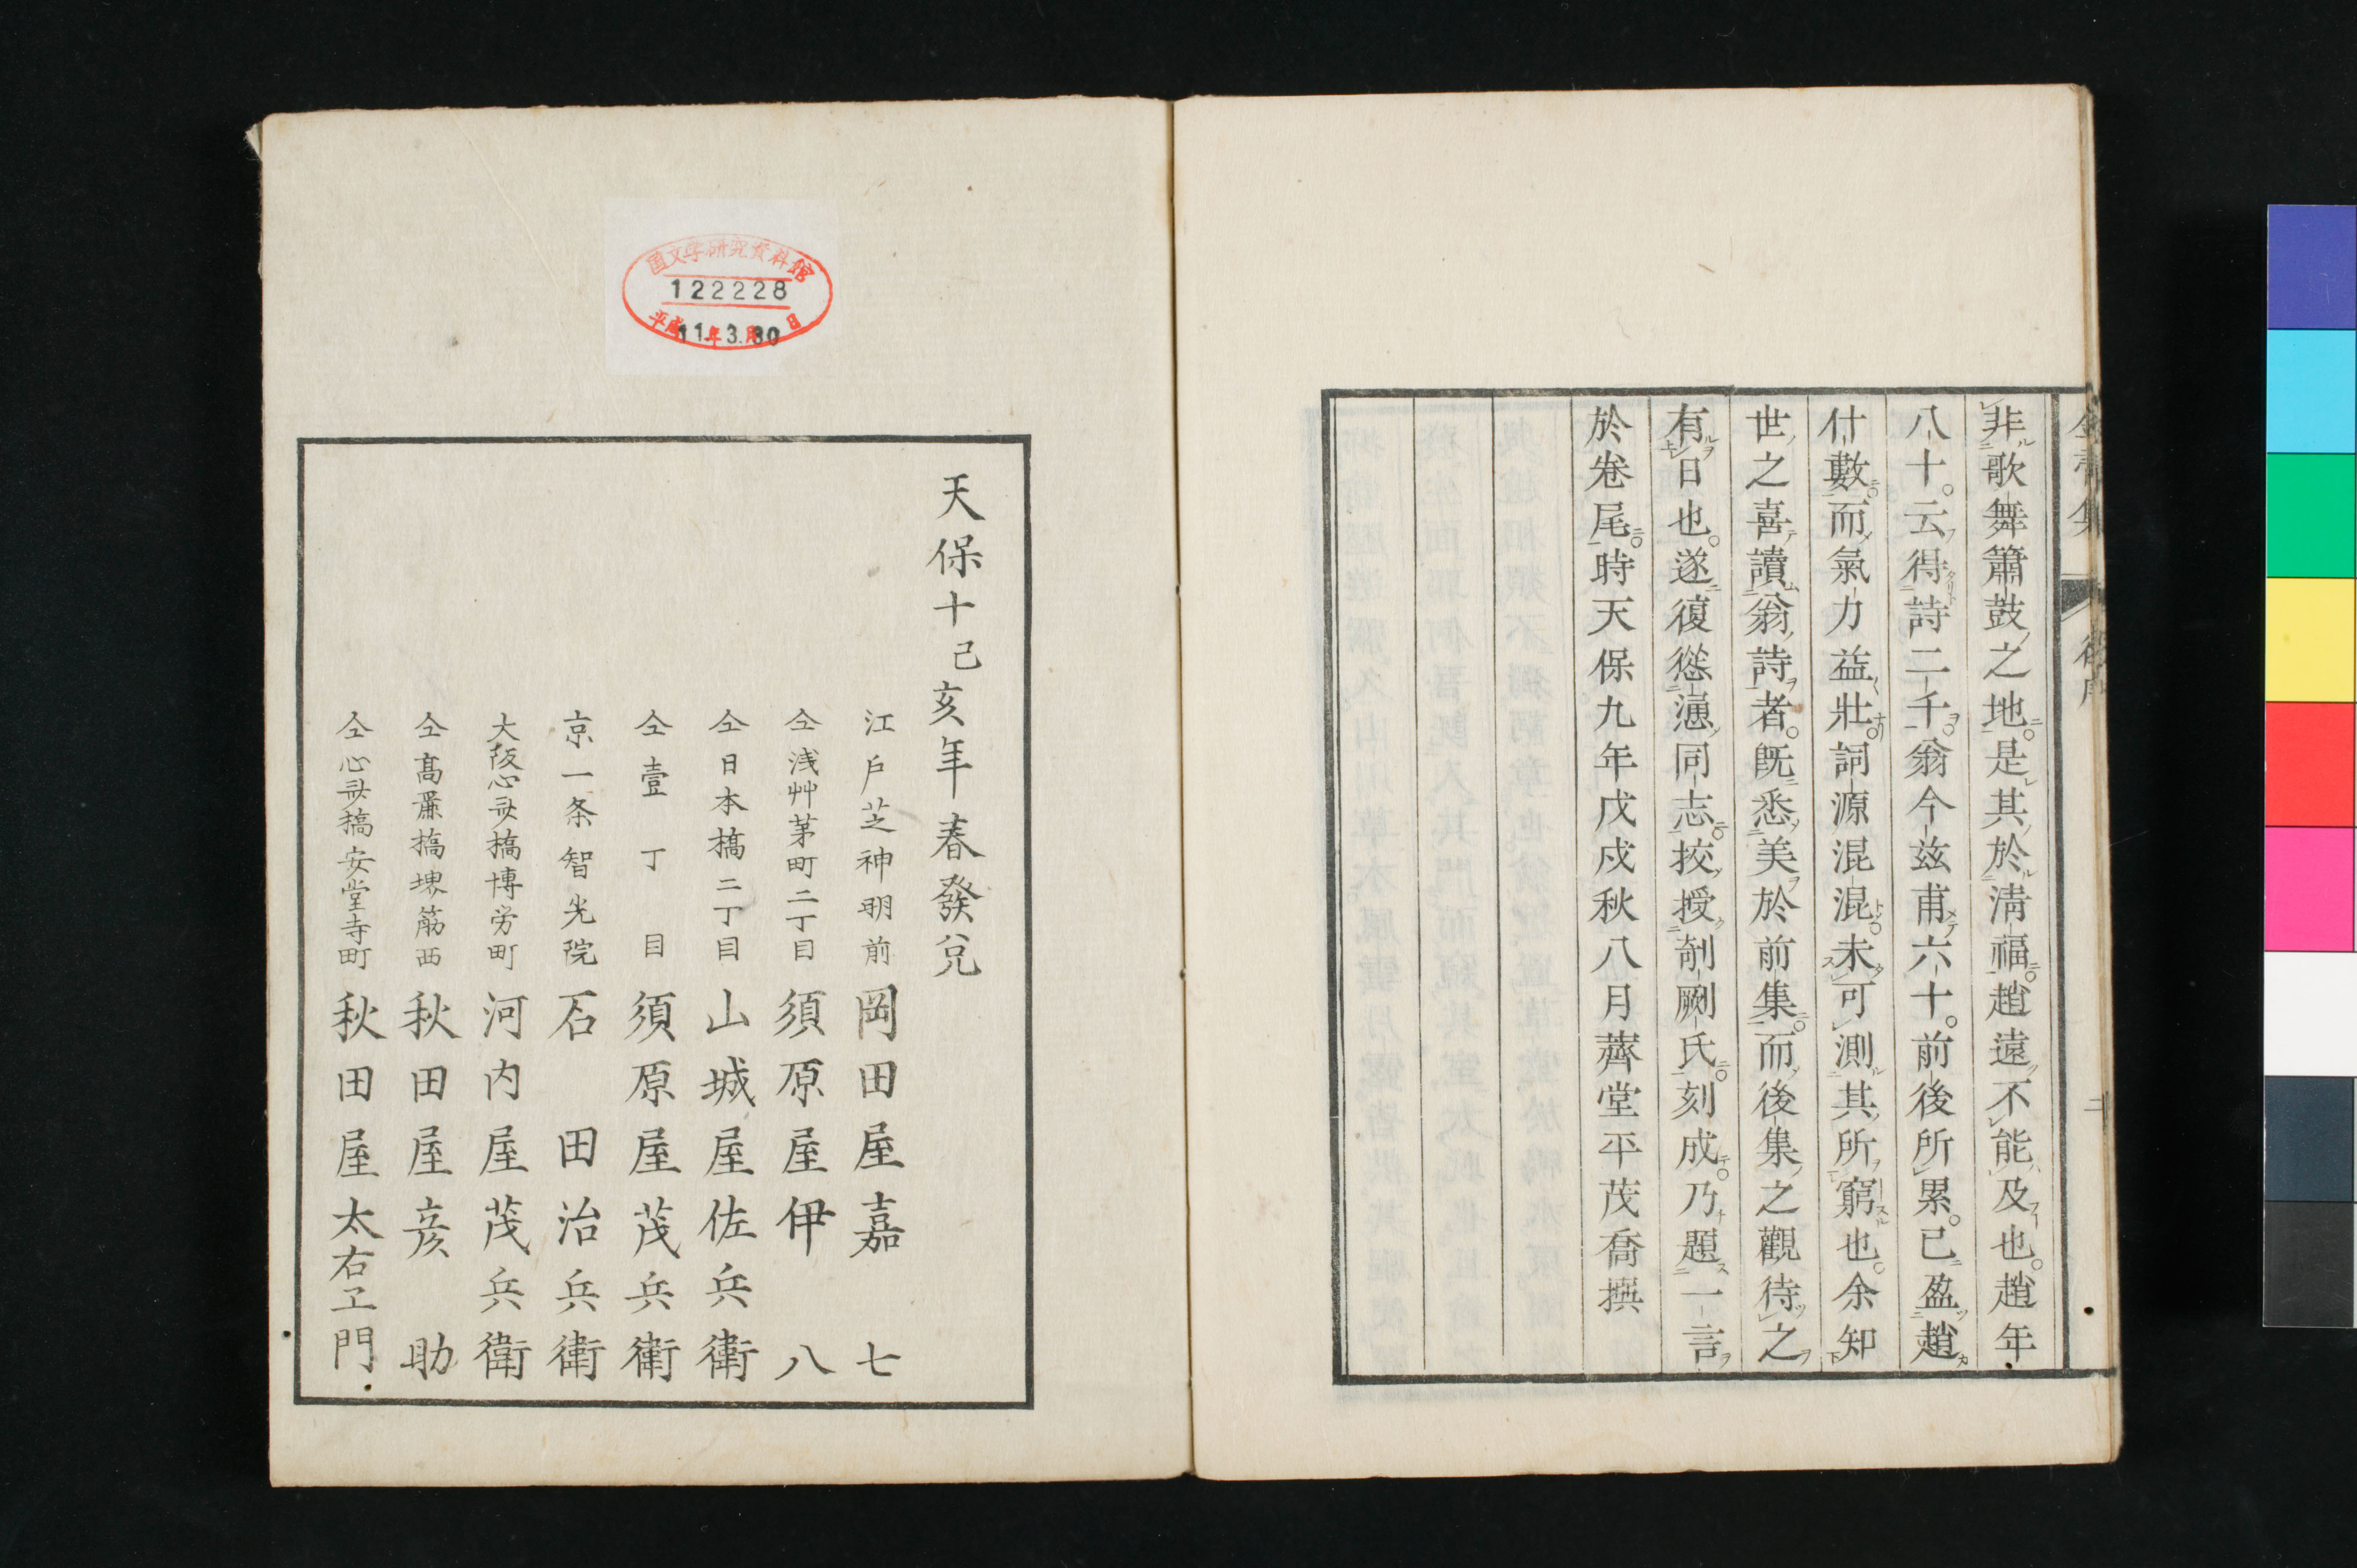 非歌舞簫鼓之地。是其於淸福。趙遠不能及也。趙年
八十。云得詩二千。翁今玆甫六十。前後所累。已盈趙
什數。而氣力益壯。詞源混混。未可測其所窮也。余知
世之喜讀翁詩者。旣悉美於前集。而後集之觀待之
有日也。遂復慫慂同志。挍授剞劂氏。刻成。乃題一言
於卷尾。時天保九年戊戌秋八月薺堂平茂喬撰
天保十己亥年春發兌
江戶芝神明前 岡田屋嘉七
仝淺艸茅町二丁目 須原屋伊八
仝日本橋二丁目 山城屋佐兵衛
仝壹丁目 須原屋茂兵衛
京一条智光院 石田治兵衛
大阪心斎橋博労町 河内屋茂兵衛
仝高麗橋堺筋西 秋田屋彦助
仝心斎橋安堂寺町 秋田屋太右ヱ門
国文学研究資料館
122228
平成11年3月30日